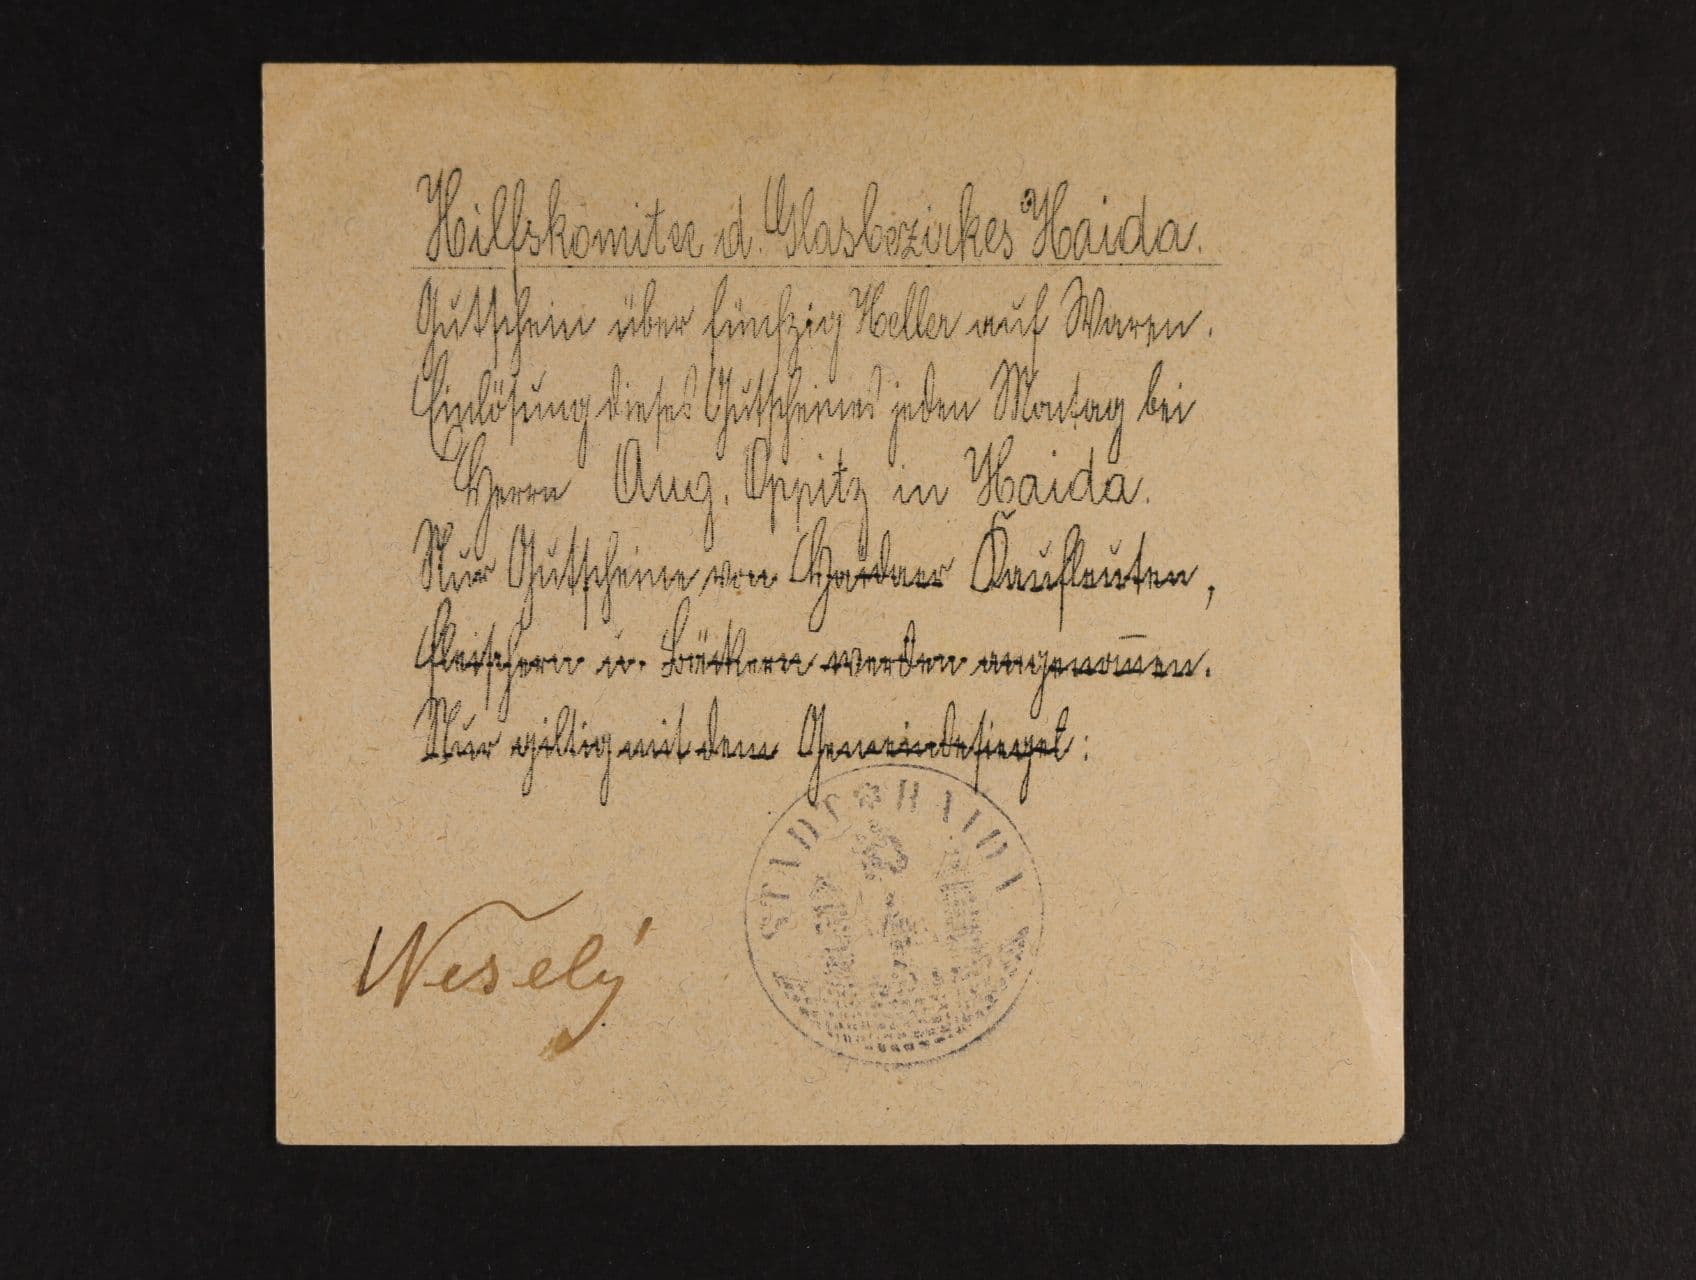 Hilfskomitee d. Glasbezirkes Haida.
Gutschein über fünfzig Heller auf Waren.
Einlösung dieses Gutscheines jeden Montag bei
Herrn Aug. Oppitz in Haida.
Nur Gutscheine von Haidaer Kaufleuten,
Fleischern u. Bäckern werden angenom̅en.
Nur giltig mit dem Gemeindesiegel:
STADT HAIDA
Veselý